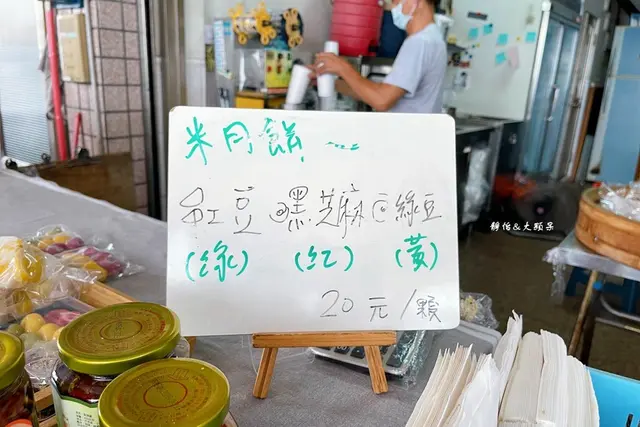 米月餅~~
紅豆@黑芝麻@綠豆
(綠) (紅) (黃)
20元/顆
靜怡&大顆呆